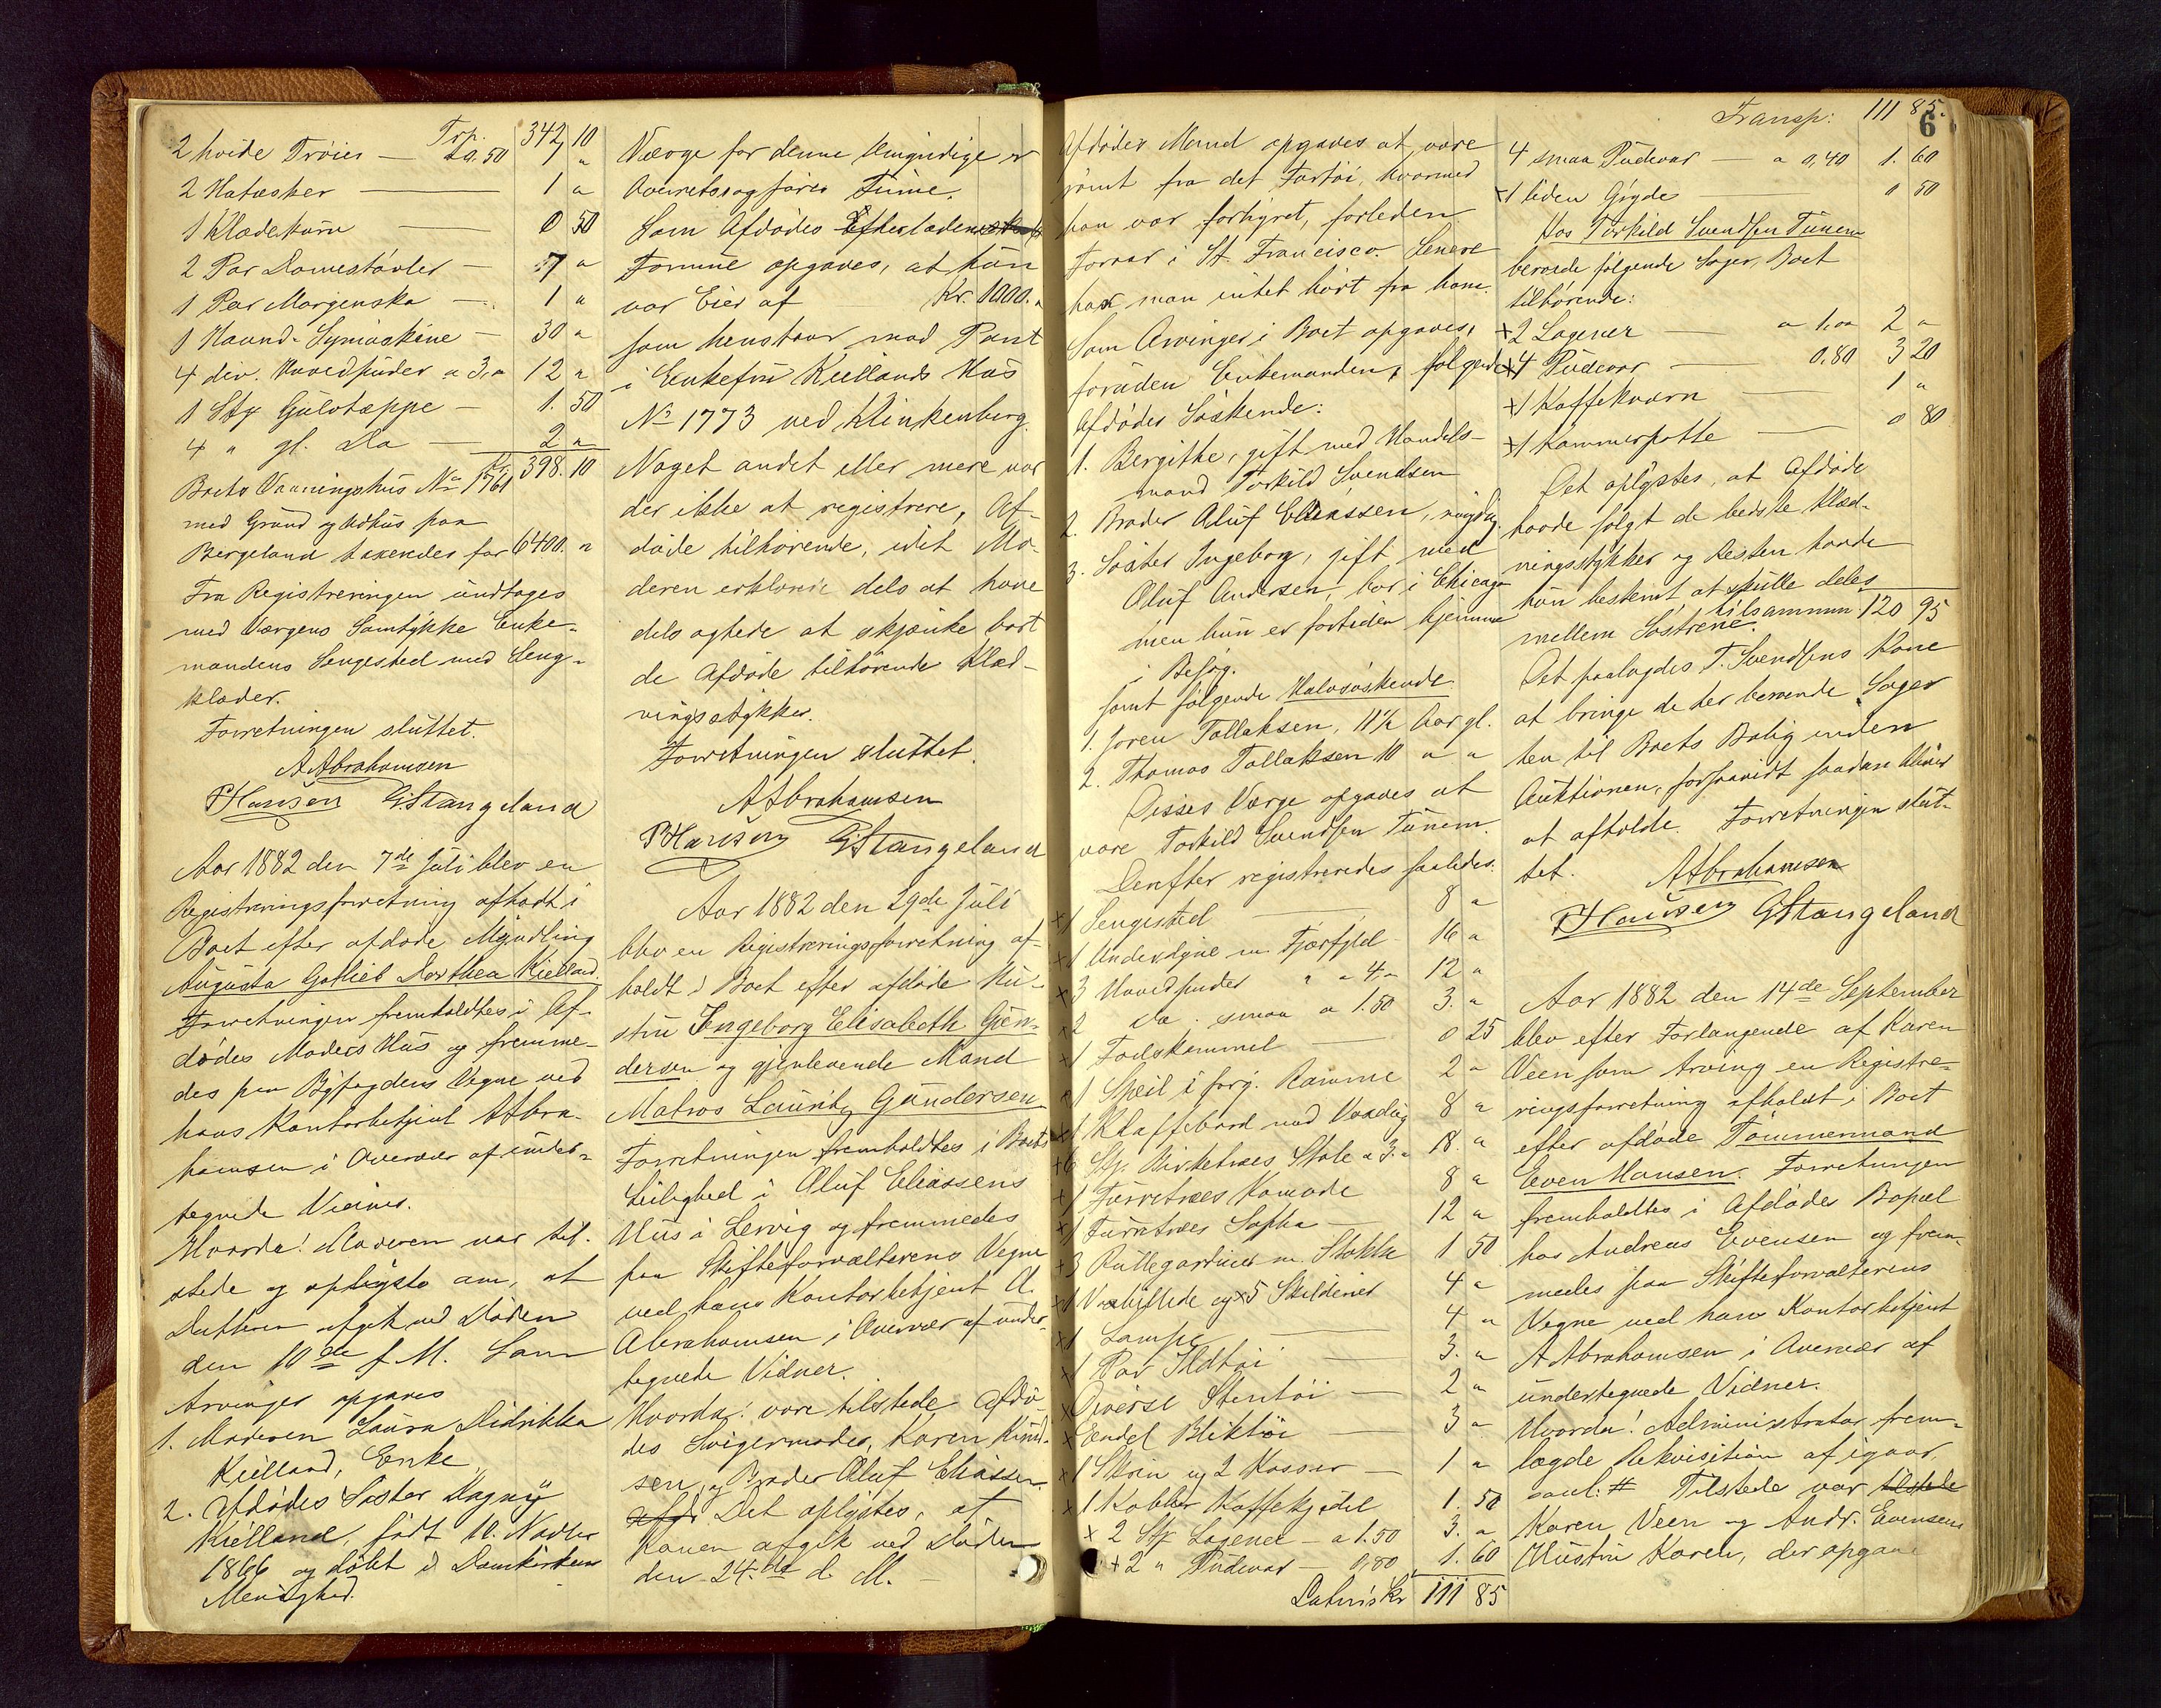 Trp. 342, 10
2 hvide Trøier — a 0.50 1 "
2 Hatæsker — 1 "
1 Klædekurv — 0 50
2 Par Damestøvler — 7 "
1 Par Morgensko — 1 "
1 Haand-Symaskine — 30 "
4 div. Hovedpuder a 3,„ 12 "
1 Stk Gulvtæppe — 1. 50
4 " gl. Do — 2 "
Kr. 398. 10
Boets Vaaningshus No 1761
med Grund og Udhus paa
Bergeland taxeredes for 6400. "
Fra Registreringen undtages
med Værgens Samtykke Enke-
mandens Sengested med Seng-
klæder.
Forretningen sluttet.
A Abrahamsen
P Hansen G Stangeland
Aar 1882 den 7de Juli blev en
Registreringsforretning afholdt i
Boet efter afdøde Myndling
Augusta Gotlieb Dorthea Kielland.
Forretningen fremholdtes i Af-
dødes Moders Hus og fremme-
des paa Byfogdens Vegne ved
hans Kontorbetjent A Abra-
hamsen i Overvær af under-
tegnede Vidner.
Hvorda! Moderen var til-
stede og oplyste om, at
Datteren afgik ved Døden
den 10de f. M. Som
Arvinger opgaves
1. Moderen Laura Didrikka
Kielland, Enke,
2. Afdødes Søster Dagny
Kielland, født 10. Novbr
1866 og døbt i Domkirkens
Menighed.
Værge for denne Umyndige er
Overretssagfører Finne.
Som Afdødes Efterladenskab
Formue opgaves, at hun
var Eier af Kr. 1000. "
som henstaar mod Pant
i Enkefru Kiellands Hus
No 1773 ved Klinkenberg.
Noget andet eller mere var
der ikke at registrere, Af-
døde tilhørende, idet Mo-
deren erklærte dels at have
dels agtede at skjænke bort
de Afdøde tilhørende Klæd-
ningsstykker.
Forretningen sluttet.
A Abrahamsen
P Hansen G Stangeland
Aar 1882 den 29de Juli
blev en Registreringsforretning af-
holdt i Boet efter afdøde Hu-
stru Ingeborg Elisabeth Gun-
dersen og gjenlevende Mand
Matros Lauritz Gundersen.
Forretningen fremholdtes i Boets
Leilighed i Oluf Eliassens
Hus i Lervig og fremmedes
paa Skifteforvalterens Vegne
ved hans Kontorbetjent A.
Abrahamsen i Overvær af under-
tegnede Vidner.
Hvorda! vare tilstede Afdø-
des Svigermoder, Karen Knud-
sen, og Broder Oluf Eliassen.
Det oplystes, at
Konen afgik ved Døden
den 24.de d. M. —
Afdødes Mand opgaves at være
rømt fra det Fartøi, hvormed
han var forhyret, forleden
Foraar i St. Francisco. Senere
har man intet hørt fra ham.
Som Arvinger i Boet opgaves,
foruden Enkemanden, følgende
Afdødes Søskende:
1. Bergithe, gift med Handels-
mand Torkild Svendsen
2. Broder Oluf Eliassen, myndig.
3. Søster Ingeborg, gift med
Oluf Andersen, bor i Chicago
men hun er fortiden hjemme
i Besøg.
samt følgende Halvsøskende
1. Søren Tollaksen, 11½ Aar gl.
2. Thomas Tollaksen 10 " "
Disses Værge opgaves at
være Torkild Svendsen Tunem.
Derefter registreredes saaledes:
x1 Sengested — 8 "
x1 Underdyne m. Fjærfyld 16 "
x3 Hovedpuder " a 4 " 12 "
x2 do. smaa a 1.50 3. "
x1 Fodskammel — 0 25
x1 Speil i forg. Ramme 2 "
x1 Klaffebord med Voxdug 8 "
x6 Stk. Birketræes Stole a 3. " 18. "
x1 Furretræes Komode 8 "
x1 Furretræes Sofa — 12 "
x3 Rullegardiner m. Stokke 1 50
x1 Voxbillede og x5 Skilderier 4 "
x1 Lampe — 4 "
x1 Par Ildtøi — 3. "
x Diverse Stentøi — 2 "
x Endel Bliktøi — 3 "
x1 Skrin og 2 Kasser — 1 "
x1 Kobber Kaffekjedel 1. 50
x 2 Stk Lagener — a 1.50 3. "
x 2 " Pudevar — 0,80 1. 60
Lateris Kr 111 85
Transp: 111 85.
6
4 smaa Pudevar — a 0,40 1. 60
x1 liden Gryde — 0 50
Hos Torkild Svendsen Tunem
beroede følgende Sager, Boet
tilhørende:
x2 Lagener — a 1,00 2 "
x4 Pudevar — 0,80 3 20
x1 Kaffekværn — 1 "
x1 Kammerpotte — 0 80
Det oplystes, at Afdøde
havde solgt de bedste Klæd-
ningsstykker og Resten havde
hun bestemt at skulle deles
mellem Søstrene. tilsammen 120 95
Det paalagdes T. Svendsens Kone
at bringe de der beroende Sager
hen til Boets Bolig inden
Auktionen, forsaavidt saadan bliver
at afholde. Forretningen slut-
tet. A Abrahamsen
P Hansen G Stangeland
Aar 1882 den 14de September
blev efter Forlangende af Karen
Veen som Arving en Registre-
ringsforretning afholdt i Boet
efter afdøde Tømmermand
Even Hansen. Forretningen
fremholdtes i Afdødes Bopæl
hos Andreas Evensen og frem-
medes paa Skifteforvalterens
Vegne ved hans Kontorbetjent
A Abrahamsen i Overvær af
undertegnede Vidner.
Hvorda! Administrator frem-
lagde Rekvisition af igaar,
saal: # Tilstede var tilstede
Karen Veen og Andr. Evensens
Hustru Karen, der opgav